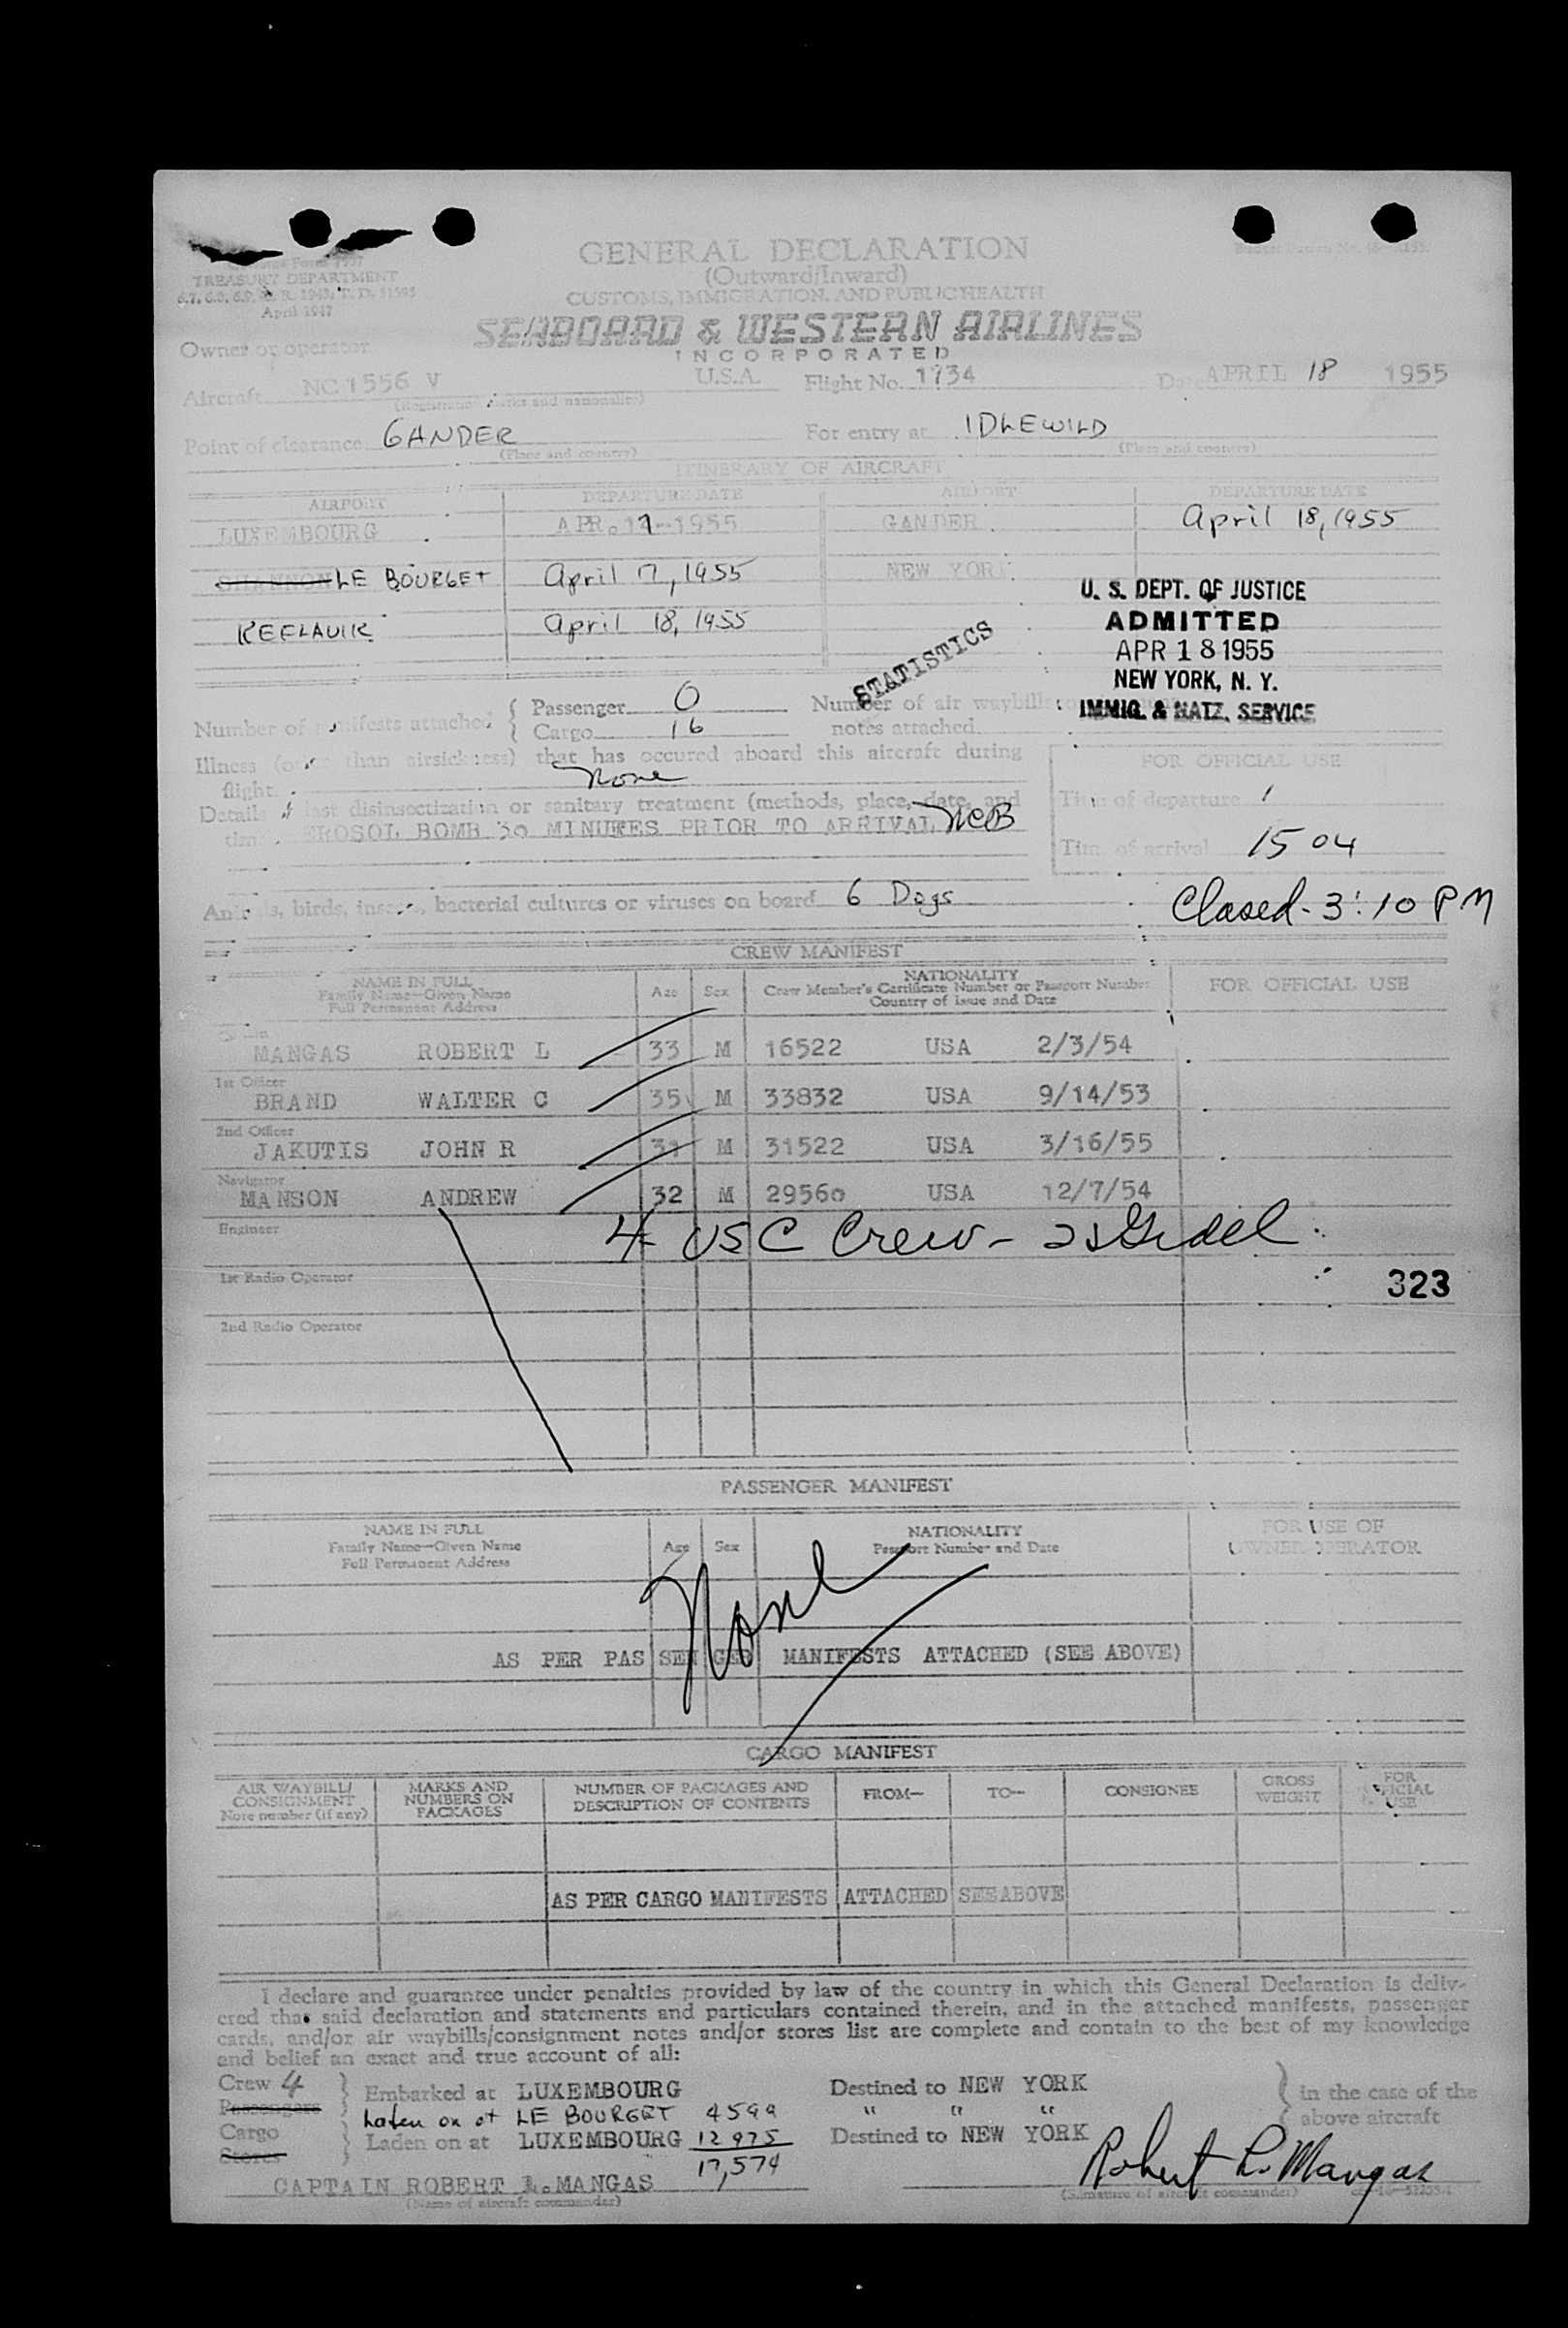 GENERAL DECLARATION
(Outward/Inward)
CUSTOMS, IMMIGRATION, AND PUBLIC HEALTH
TREASURY DEPARTMENT
April 1947
SEABOARD & WESTERN AIRLINES
INCORPORATED
Owner or operator
Aircraft NC 1556 V U.S.A. Flight No. 1734 Date APRIL 18 1955
(Registration marks and nationality)
Point of clearance GANDER For entry at IDLEWILD
(Place and country) (Place and country)
ITINERARY OF AIRCRAFT
AIRPORT DEPARTURE DATE AIRPORT DEPARTURE DATE
LUXEMBOURG APR. 17-1955 GANDER April 18, 1955
SHANNON LE BOURGET April 17, 1955 NEW YORK
KEFLAVIK April 18, 1955
U. S. DEPT. OF JUSTICE
ADMITTED
APR 18 1955
NEW YORK, N. Y.
IMMIG. & NATZ. SERVICE
STATISTICS
Number of manifests attached { Passenger 0 Number of air waybills
Cargo 16 notes attached.
Illness (other than airsickness) that has occured aboard this aircraft during
flight. None
FOR OFFICIAL USE
Details of last disinsectization or sanitary treatment (methods, place, date, and
time AEROSOL BOMB 30 MINUTES PRIOR TO ARRIVAL WCB
Time of departure
Time of arrival 15 04
Animals, birds, insects, bacterial cultures or viruses on board 6 Dogs
Closed - 3:10 PM
CREW MANIFEST
NAME IN FULL
Family Name—Given Name
Full Permanent Address
Age Sex
NATIONALITY
Crew Member's Certificate Number or Passport Number
Country of Issue and Date
FOR OFFICIAL USE
MANGAS ROBERT L 33 M 16522 USA 2/3/54
1st Officer
BRAND WALTER C 35 M 33832 USA 9/14/53
2nd Officer
JAKUTIS JOHN R 31 M 31522 USA 3/16/55
Navigator
MANSON ANDREW 32 M 29560 USA 12/7/54
Engineer
4 - USC Crew -
1st Radio Operator
323
2nd Radio Operator
PASSENGER MANIFEST
NAME IN FULL
Family Name—Given Name
Full Permanent Address
Age Sex
NATIONALITY
Passport Number and Date
FOR USE OF
OWNER OPERATOR
None
AS PER PASSENGER MANIFESTS ATTACHED (SEE ABOVE)
CARGO MANIFEST
AIR WAYBILL/
CONSIGNMENT
Note number (if any)
MARKS AND
NUMBERS ON
PACKAGES
NUMBER OF PACKAGES AND
DESCRIPTION OF CONTENTS
FROM— TO— CONSIGNEE
GROSS
WEIGHT
FOR
OFFICIAL
USE
AS PER CARGO MANIFESTS ATTACHED SEE ABOVE
I declare and guarantee under penalties provided by law of the country in which this General Declaration is deliv-
ered that said declaration and statements and particulars contained therein, and in the attached manifests, passenger
cards, and/or air waybills/consignment notes and/or stores list are complete and contain to the best of my knowledge
and belief an exact and true account of all:
Crew 4 Embarked at LUXEMBOURG Destined to NEW YORK in the case of the
Passengers Laden on at LE BOURGET 4599 " " " above aircraft
Cargo Laden on at LUXEMBOURG 12975 Destined to NEW YORK
Stores 17,574
CAPTAIN ROBERT L. MANGAS Robert L. Mangas
(Name of aircraft commander) (Signature of aircraft commander)